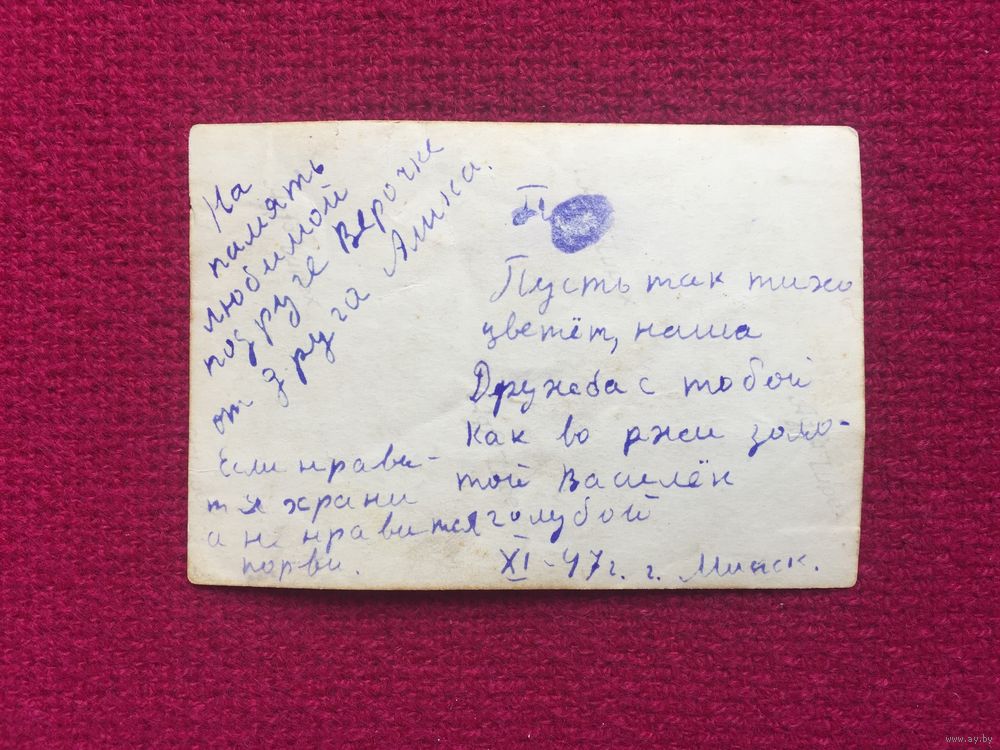 На
память
любимой
подруге Верочке
от друга Алика.
Если нрави-
тся храни
а не нравится
порви.
XI
Пусть так тихо
цветёт, наша
Дружба с тобой
Как во ржи золо-
той Василён
голубой
XI-47г. г. Минск.
www.ay.by